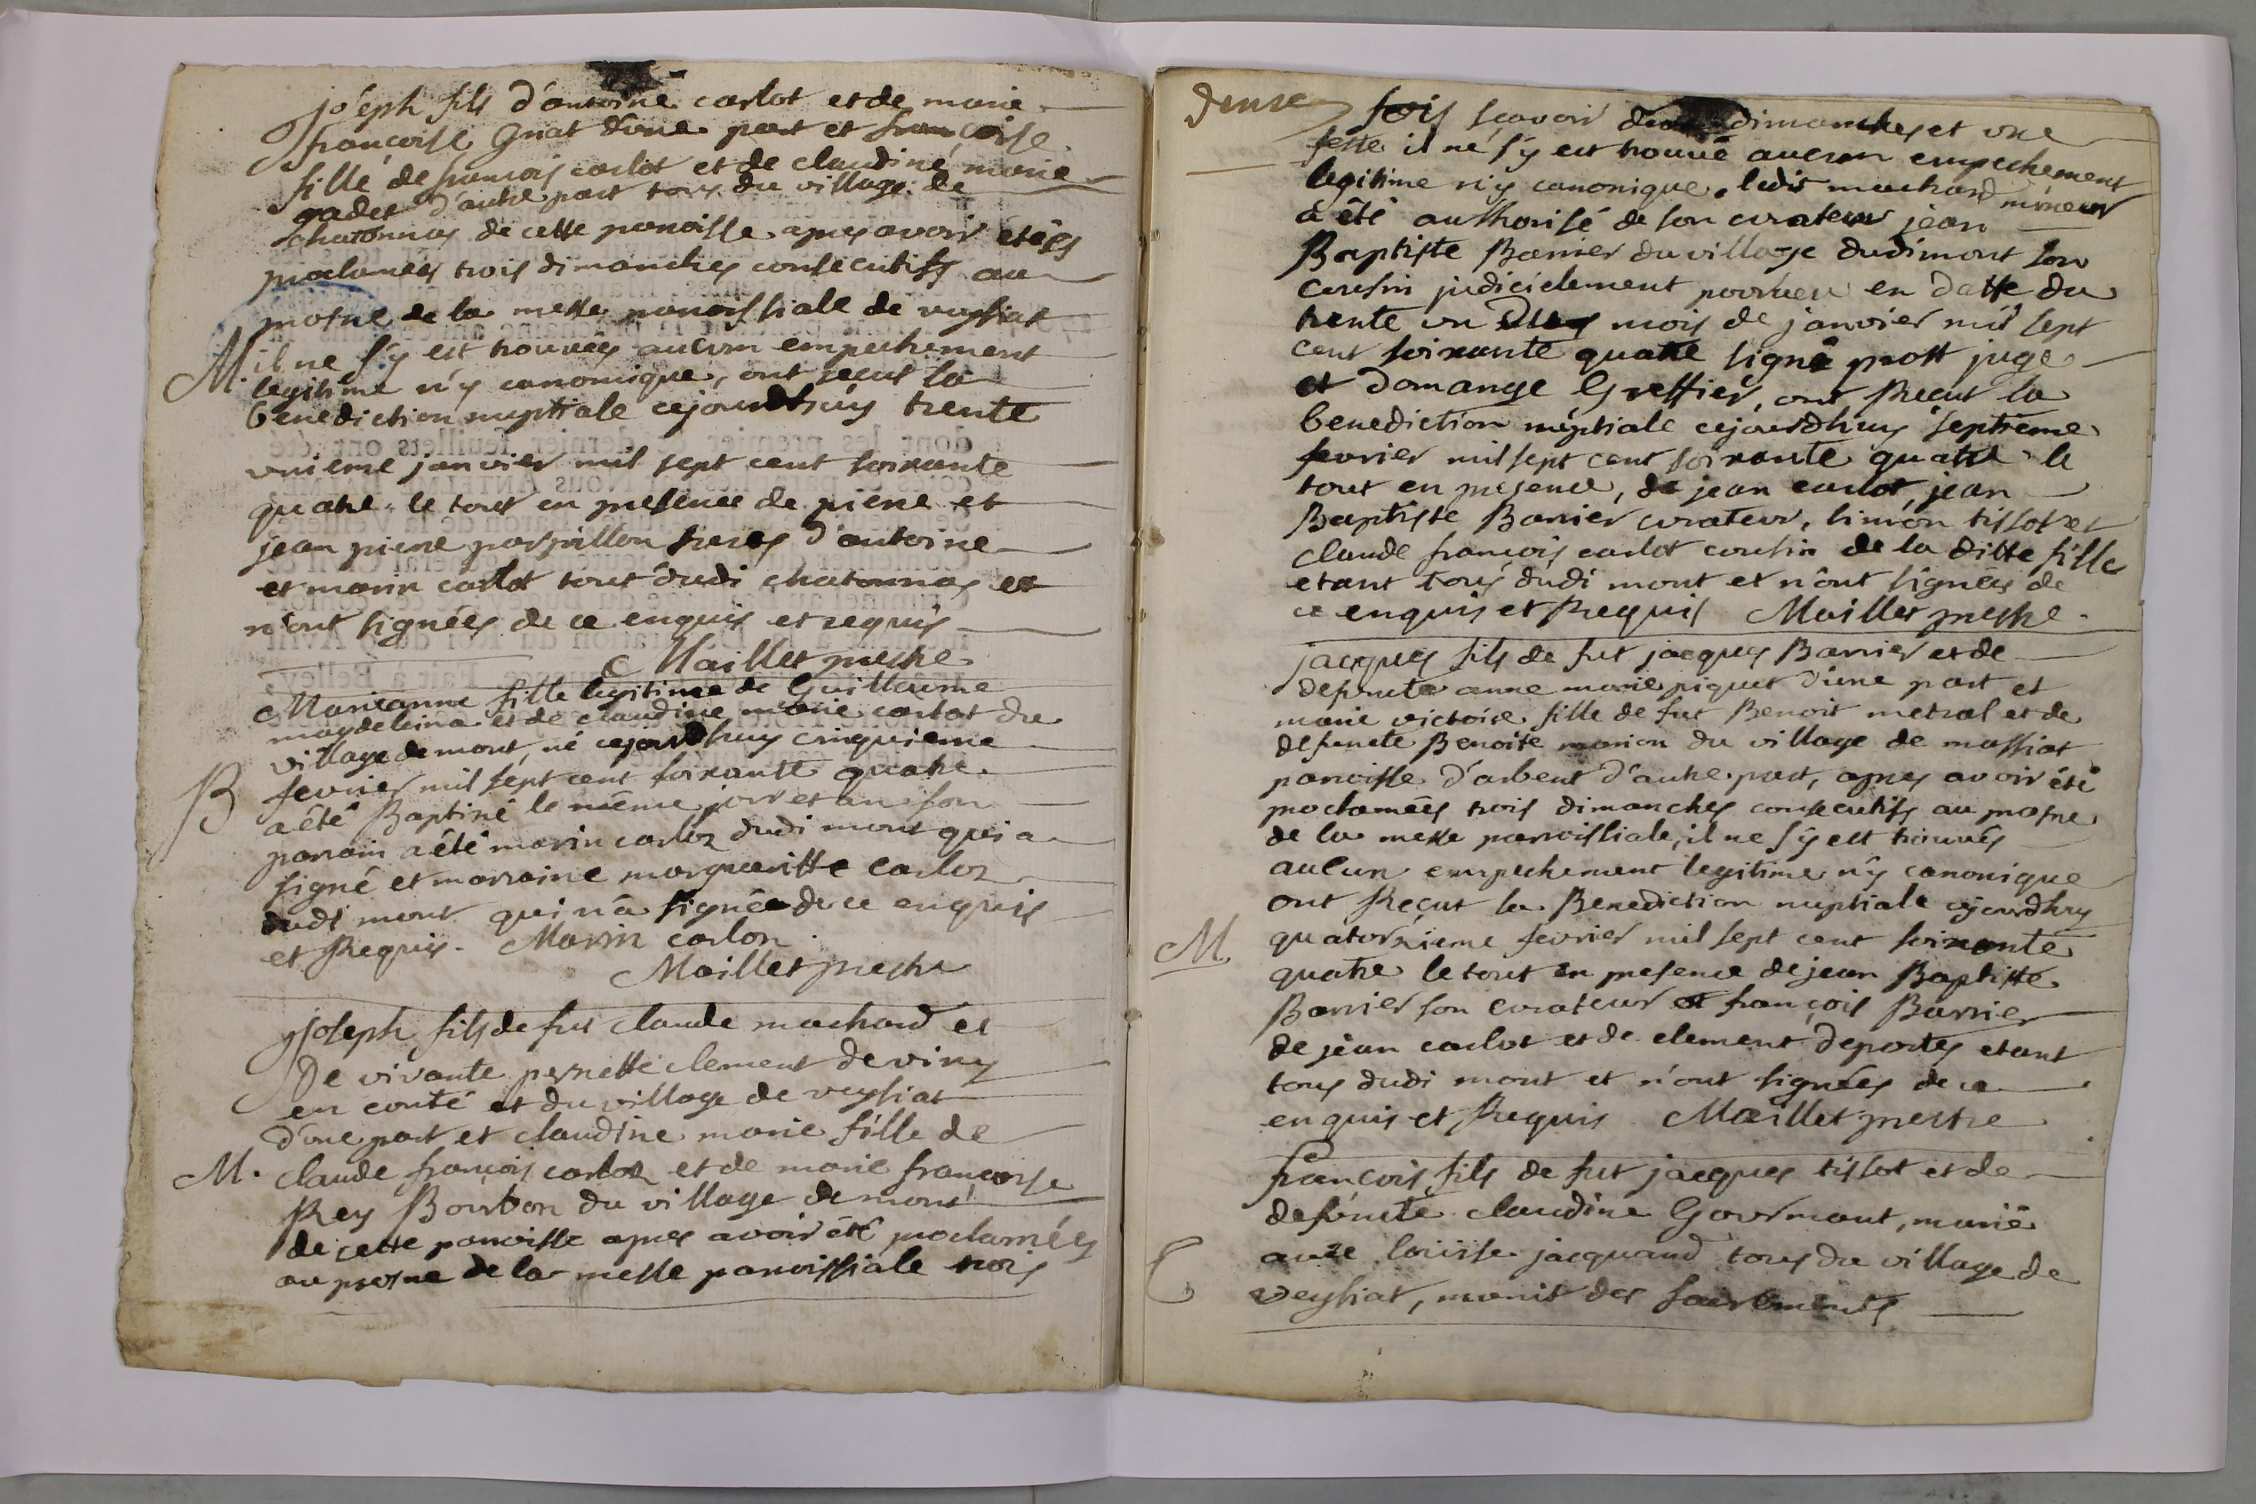 joseph fils d'antoine carlot et de marie
françoise Gnat d'une part et françoise
fille de francois carlot et de claudine marie
gadet d'autre part tous du village de
chatonnas de cette paroisse apres avoir étées
proclamées trois dimanches consecutifs au
prosne de la messe paroissiale de veysiat
M. il ne s'y est trouvées aucum empechement
legitime n'y canonique, ont recut la
benediction nuptiale cejourdhuy trente
vnieme janvier mil sept cent soixante
quatre le tout en presence de pierre et
jean pierre parpillon freres d'antoine
et marin carlot tout dudi chatonnas et
n'ont signées de ce enquis et requis
Maillet prestre
Marianne fille legitime de Guillaume
maydeleina et de claudine marie carlot du
village de mont, né cejourdhuy cinquieme
B fevrier mil sept cent soixante quatre
a été Baptisé le même jour et an son
parrain a été marin carloz dudi mont qui a
signé et marraine margueritte carloz
dudi mont qui n'a signée de ce enquis
et Requis. Marin carlon.
Maillet prestre
joseph fils de fut claude machard et
De vivante pernette clement de viry
en conté et du village de veysiat
d'une part et claudine marie fille de
M. claude françois carloz et de marie francoise
Rey Bourbon du village de mont
de cette paroisse apres avoir été proclamées
au prosne de la messe paroissiale trois
fois scavoir dimanches et vne
feste il ne s'y est trouvé aucum empechement
legitime n'y canonique. ledit machard mineur
a été authorisé de son curateur jean
Baptiste Barrier du village dudimont son
cousin judicielement pourveu en datte du
trente vn mois de janvier mil sept
cent soixante quatre signé prost juge
et domange Greffier, ont Recut la
benediction nuptiale cejourdhuy septieme
fevrier mil sept cent soixante quatre le
tout en presence, de jean carlot, jean
Baptiste Barrier curateur, simon tissot et
claude françois carlot cousin de la ditte fille
etant tous dudi mont et n'ont signées de
ce enquis et Requis Maillet prestre.
jacques fils de fut jacques Barrier et de
defuncte anne marie piquet d'une part et
marie victoire fille de fut Benoit metral et de
defuncte Benoite marion du village de massiat
paroisse d'arbent d'autre part, apres avoir été
proclamées trois dimanches consecutifs au prosne
de la messe parroissiale, il ne s'y est trouvés
aucun empechement legitime n'y canonique
ont Reçut la Benediction nuptiale cejourdhuy
M. quatorzieme fevrier mil sept cent soixante
quatre le tout en presence de jean Baptiste
Barrier son curateur et françois Barrier
de jean carlot et de clement deportes etant
tous dudi mont et n'ont signées de ce
enquis et Requis Maillet prestre
francois fils de fut jacques tissot et de
defuncte claudine Gourmant, marié
avec louise jacquand tous du village de
veysiat, munit des sacrements